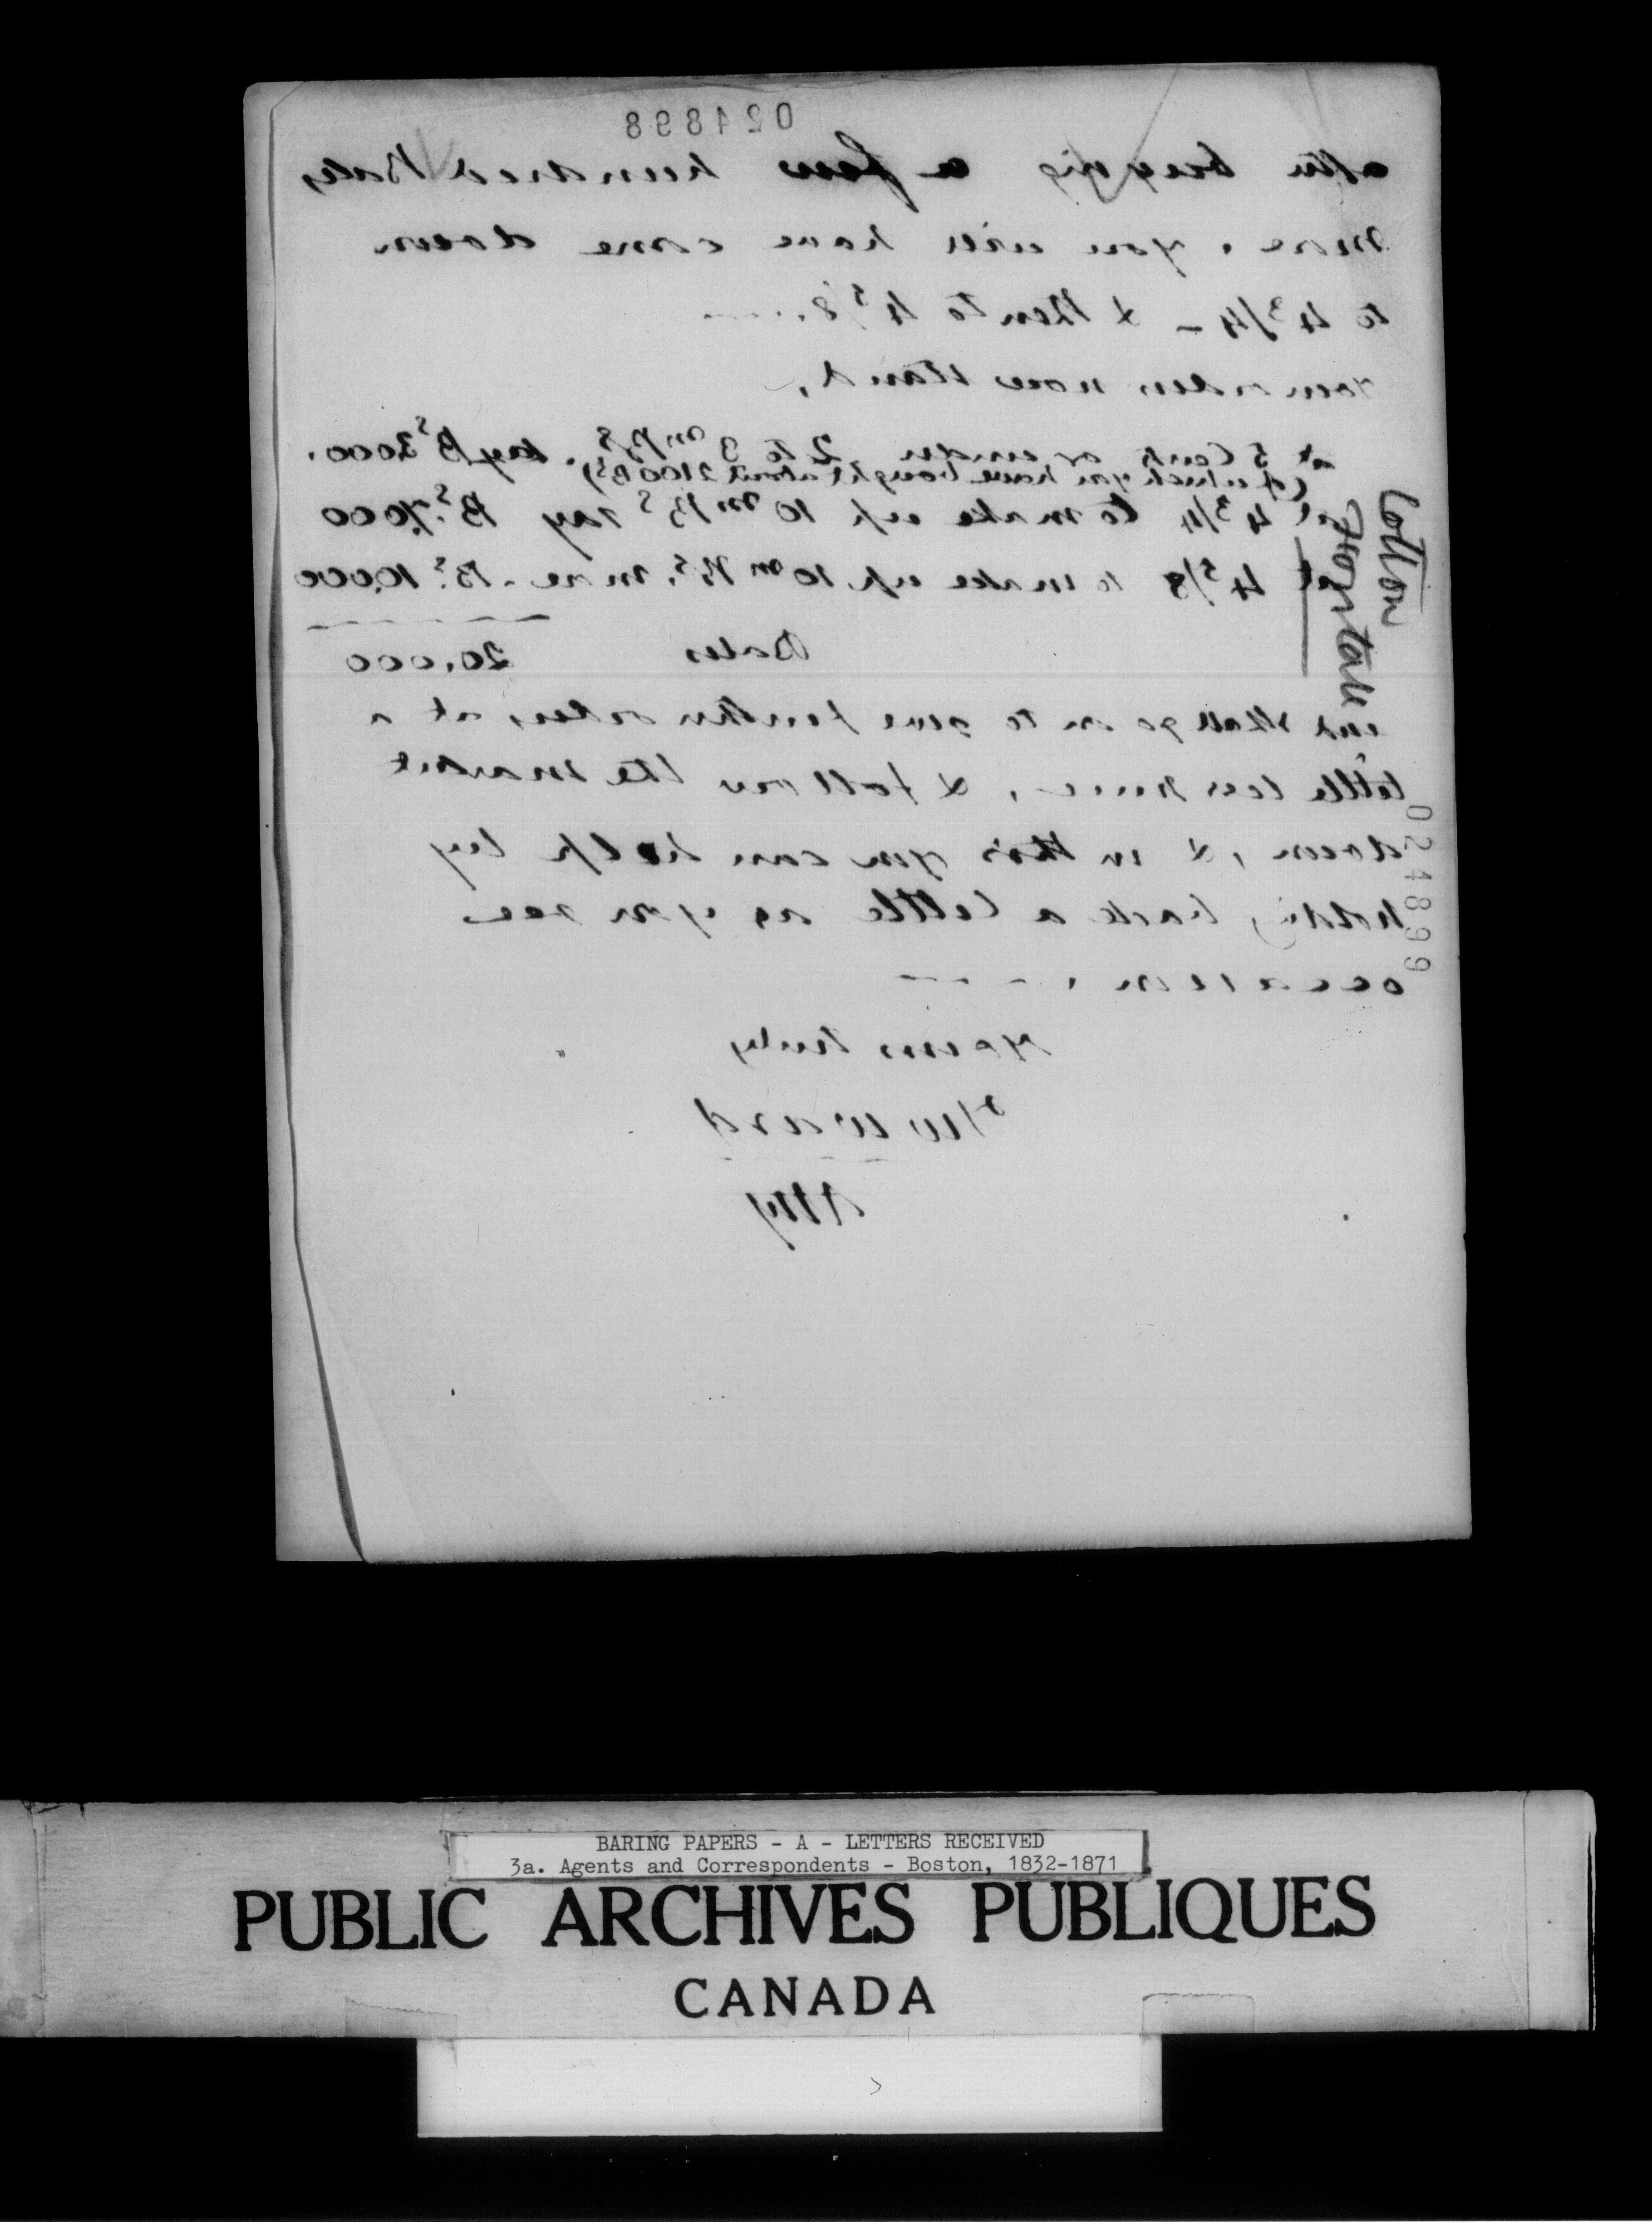 024898
after buying a few hundred Bales
more, you will have come down
to 4 3/4 - & then to 4 5/8. ----
your orders now stand,
at 5 Cents or under 2 to 3 m Bs. say Bs 3000.
(of which you have bought about 2100 Bs)
at 4 3/4 to make up 10 m Bs say Bs. 7,000
at 4 5/8 to make up 10 m Bs. more - Bs. 10,000
Bales 20,000
and shall go on to give further orders, at a
little less price, & follow the market
down, & in this you can help by
holding back a little as you see
occasion. ----
Yours truly
T W Ward
Atty
Cotton
024899
BARING PAPERS - A - LETTERS RECEIVED
3a. Agents and Correspondents - Boston, 1832-1871
PUBLIC ARCHIVES PUBLIQUES
CANADA